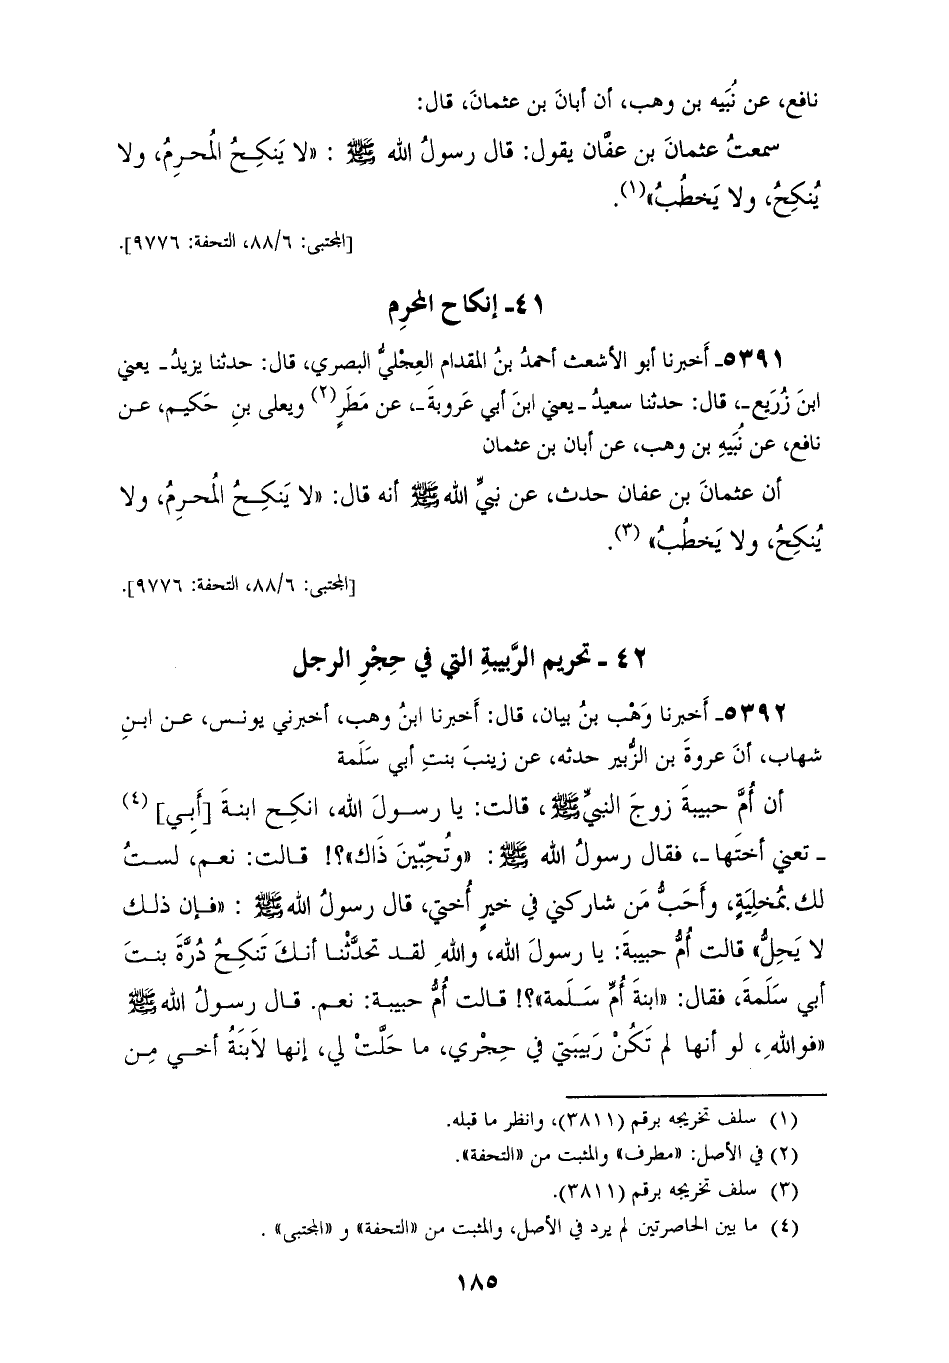 نافع، عن نُبَيه بن وهب، أن أبانَ بن عثمانَ، قال:
سمعتُ عثمانَ بن عفَّان يقول: قال رسولُ الله ﷺ : «لا يَنكِحُ المُحرِمُ، ولا
يُنكِحُ، ولا يَخطُبُ»(١).
[المجتبى: ٨٨/٦، التحفة: ٩٧٧٦].
٤١- إنكاح المحرِم
٥٣٩١- أَخبرنا أبو الأشعث أحمدُ بنُ المقدام العِجْليُّ البصري، قال: حدثنا يزيدُ- يعني
ابنَ زُرَيع-، قال: حدثنا سعيدُ -يعني ابنَ أبي عَروبةَ-، عن مَطَرٍ(٢) ويعلى بنِ حَكيم، عن
نافع، عن نُبَيهِ بن وهب، عن أبان بن عثمان
أن عثمانَ بن عفان حدث، عن نبيِّ اللهﷺ أنه قال: «لا يَنكِحُ المُحرِمُ، ولا
يُنكِحُ، ولا يَخطُبُ» (٣).
[المجتبى: ٨٨/٦، التحفة: ٩٧٧٦].
٤٢ - تحريم الرَّبيبةِ التي في حِجْرِ الرجل
٥٣٩٢- أَخبرنا وَهْب بنُ بيان، قال: أَخبرنا ابنُ وهب، أخبرني يونس، عن ابنِ
شهاب، أنَ عروةَ بن الزُّبير حدثه، عن زينبَ بنتِ أبي سَلَمة
أن أُمَّ حبيبةَ زوجَ النبيِّﷺ، قالت: يا رسولَ الله، انكِح ابنةَ [أَبي] (٤)
- تعني أختَها-، فقال رسولُ الله ﷺ: «وتُحبّينَ ذَاك»؟! قالت: نعم، لستُ
لك.بمُخلِيَةٍ، وأَحَبُّ مَن شاركني في خيرٍ أُختي، قال رسولُ اللهﷺ : «فإن ذلك
لا يَحِلُّ» قالت أُمُّ حبيبةَ: يا رسولَ الله، واللهِ لقد تحدَّثْنا أنكَ تَنكِحُ دُرَّةَ بنتَ
أبي سَلَمةَ، فقال: «ابنةَ أُمِّ سَلَمة»؟! قالت أُمُّ حبيبة: نعم. قال رسولُ اللهﷺ
«فواللهِ، لو أنها لم تَكُنْ رَبيبَتي في حِجْري، ما حَلَّتْ لي، إنها لاَبنَةُ أخي مِن
(١) سلف تخريجه برقم (٣٨١١)، وانظر ما قبله.
(٢) في الأصل: «مطرف» والمثبت من «التحفة».
(٣) سلف تخريجه برقم (٣٨١١).
(٤) ما بين الحاصرتين لم يرد في الأصل، والمثبت من «التحفة» و «المجتبى» .
١٨٥